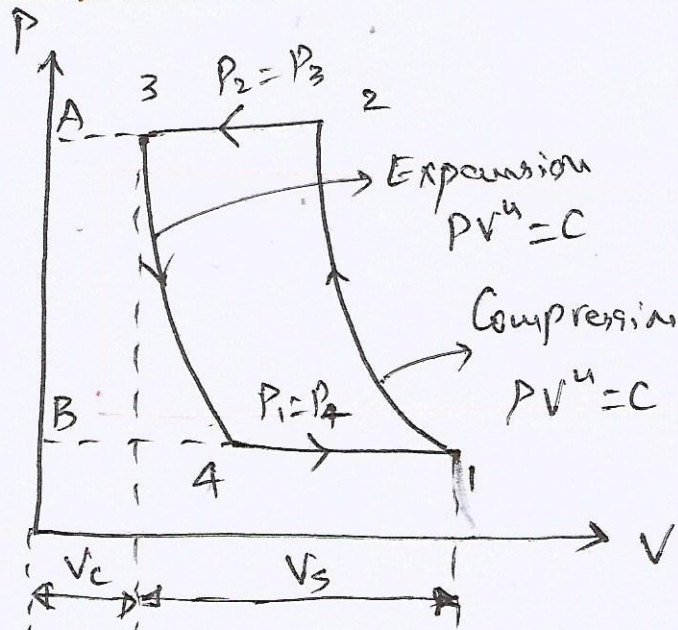 P
3
P2 = P3
2
A
Expansion
PVⁿ = C
Compression
PVⁿ = C
P1 = P4
B
4
1
V
Vc
Vs